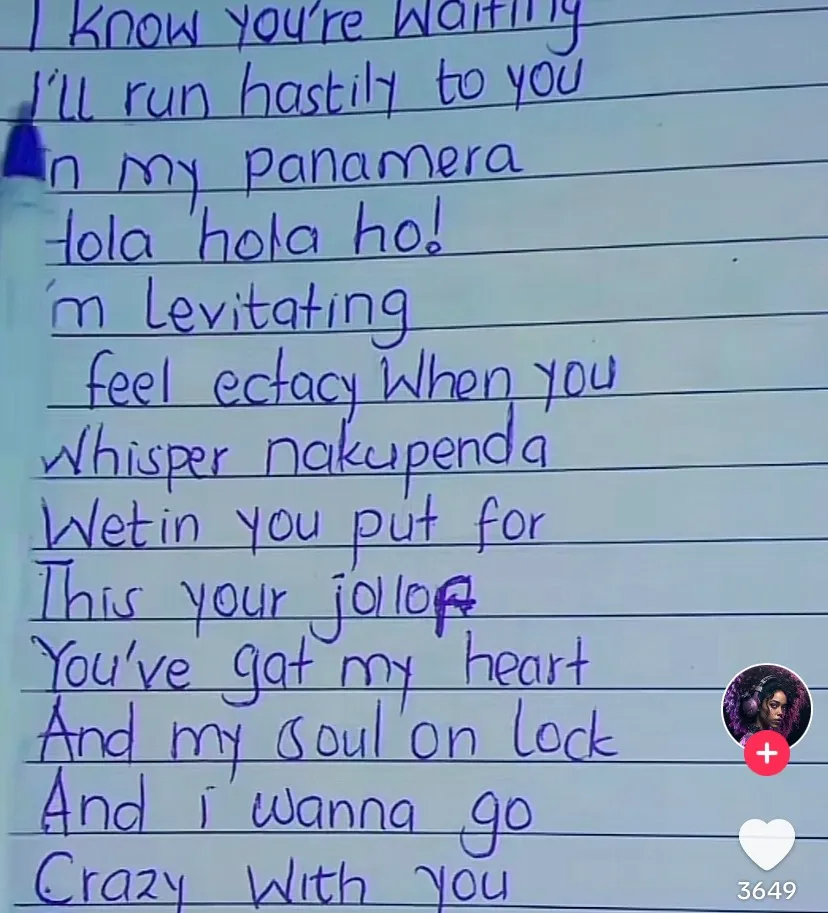 I know you're waiting
I'll run hastily to you
In my panamera
Hola hola ho!
I'm Levitating
feel ectacy When you
Whisper nakupenda
Wetin you put for
This your jollof
You've gat my heart
And my soul on lock
And i wanna go
Crazy With you
3649